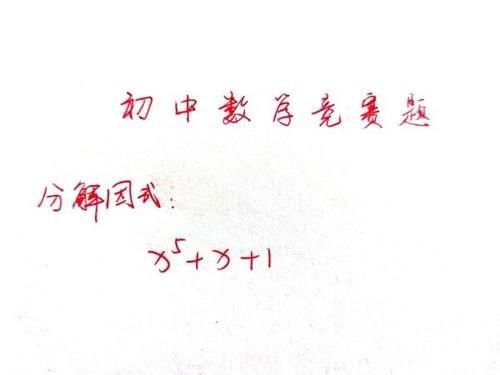 初中数学竞赛题
分解因式：
x⁵+x+1